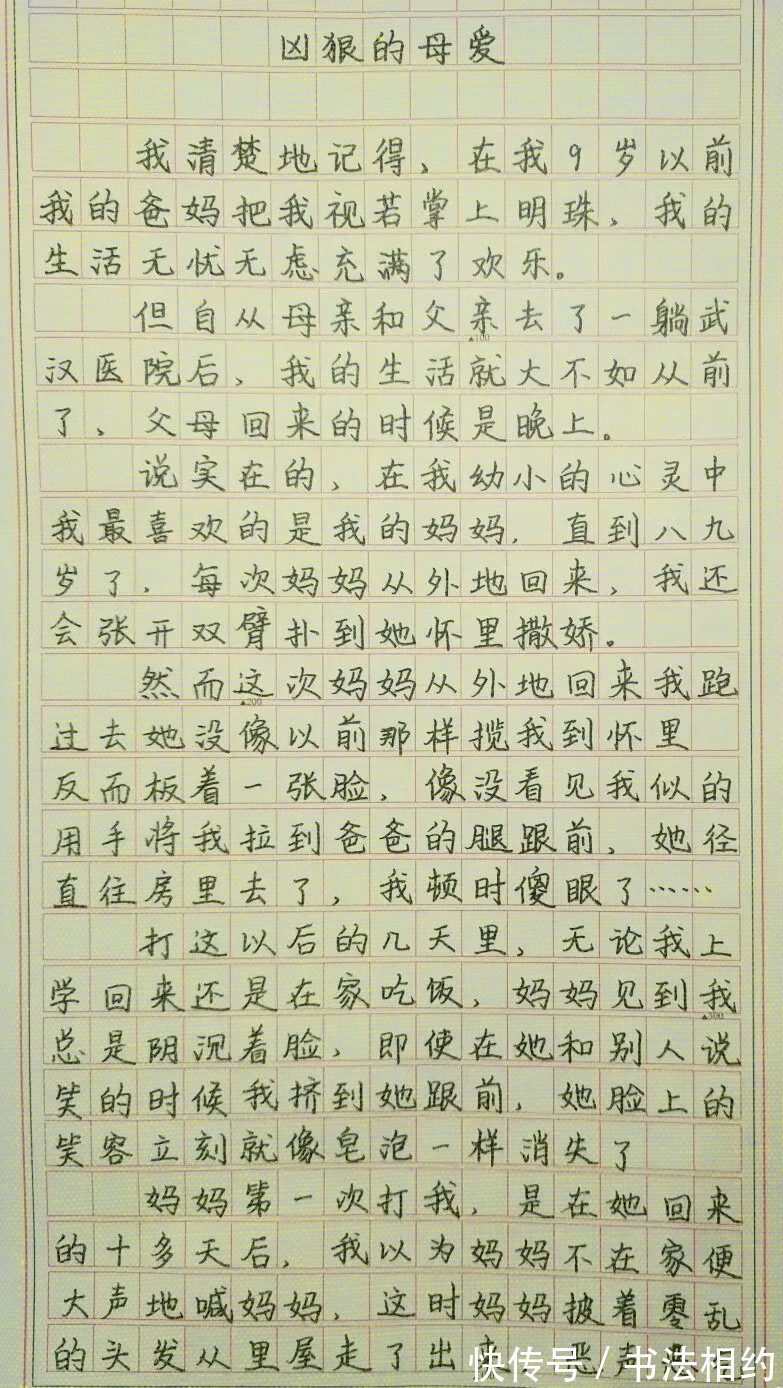 凶狠的母爱
我清楚地记得、在我9岁以前
我的爸妈把我视若掌上明珠、我的
生活无忧无虑充满了欢乐。
但自从母亲和父亲去了一躺武
▲100
汉医院后、我的生活就大不如从前
了、父母回来的时候是晚上。
说实在的、在我幼小的心灵中
我最喜欢的是我的妈妈，直到八九
岁了，每次妈妈从外地回来，我还
会张开双臂扑到她怀里撒娇。
然而这次妈妈从外地回来我跑
▲200
过去她没像以前那样揽我到怀里
反而板着一张脸，像没看见我似的
用手将我拉到爸爸的腿跟前，她径
直往房里去了，我顿时傻眼了……
打这以后的几天里，无论我上
学回来还是在家吃饭，妈妈见到我
▲300
总是阴沉着脸，即使在她和别人说
笑的时候我挤到她跟前，她脸上的
笑容立刻就像皂泡一样消失了
妈妈第一次打我，是在她回来
的十多天后，我以为妈妈不在家便
大声地喊妈妈，这时妈妈披着零乱
的头发从里屋走了出来 恶声
快传号/书法相约